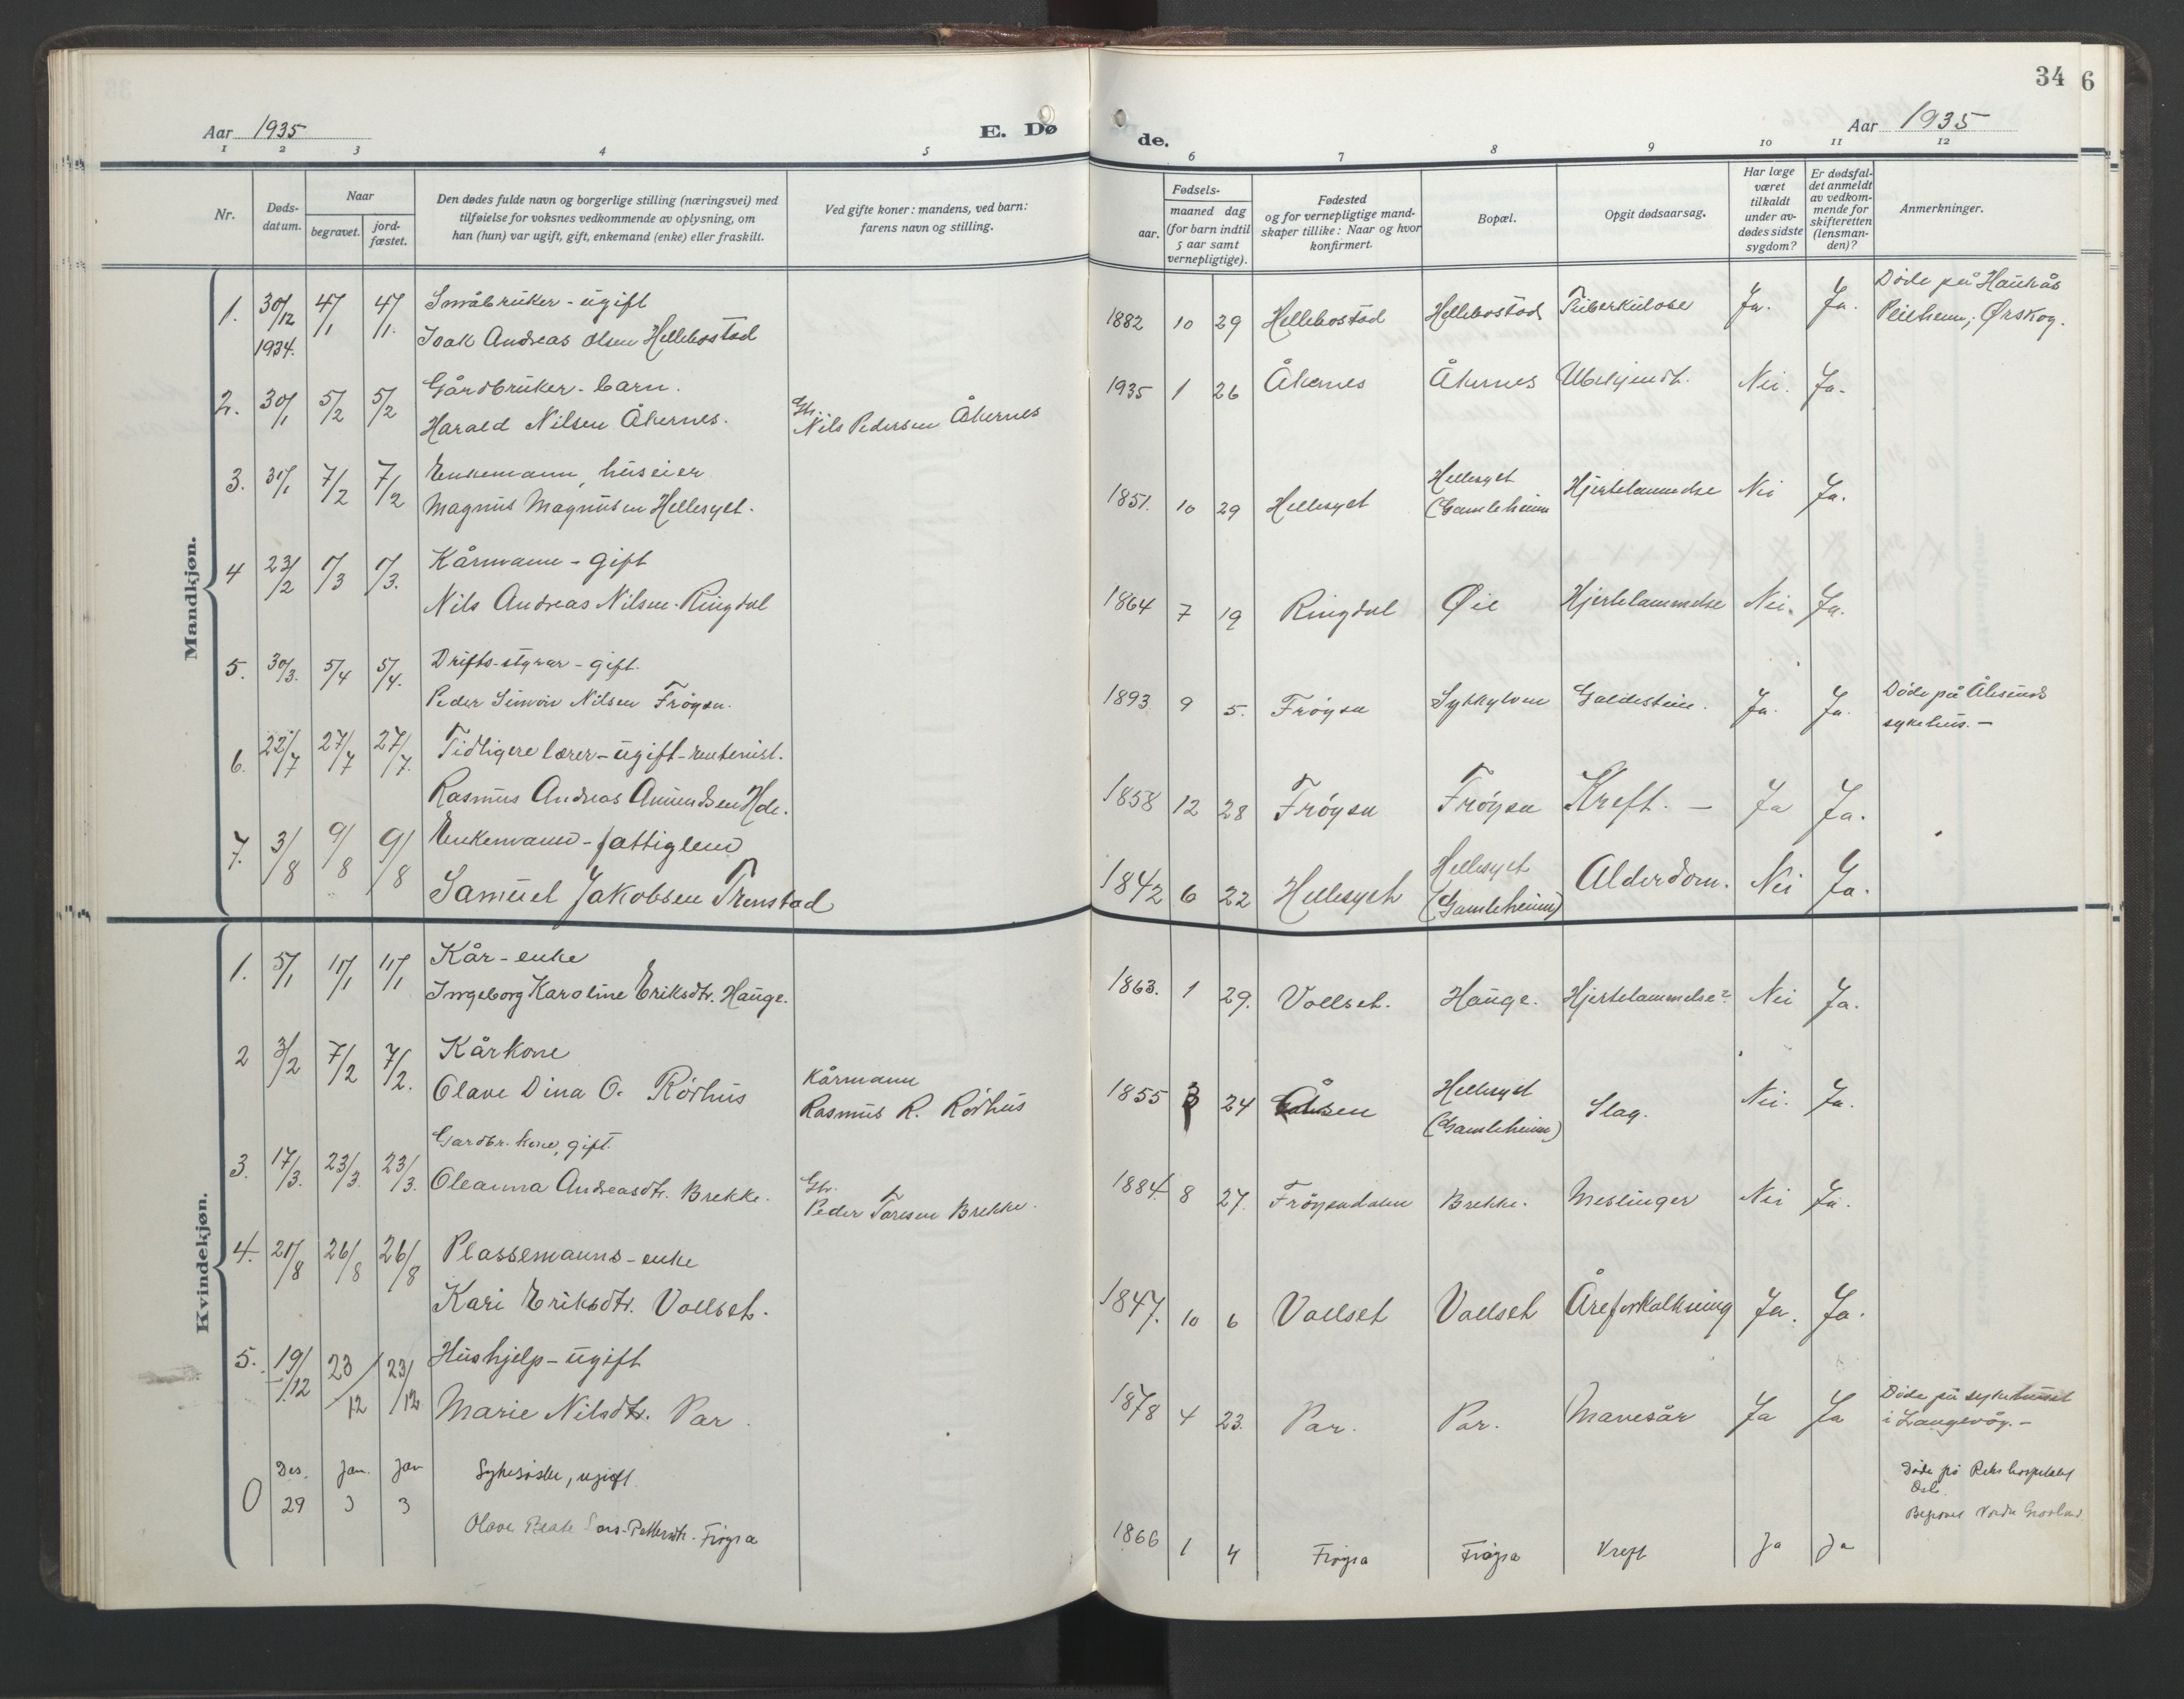 34 6
Aar 1935 E. Dø de. Aar 1935
1 2 3 4 5 6 7 8 9 10 11 12
Nr.
Døds-
datum.
Naar
begravet.
jord-
fæstet.
Den dødes fulde navn og borgerlige stilling (næringsvei) med
tilføielse for voksnes vedkommende av oplysning, om
han (hun) var ugift, gift, enkemand (enke) eller fraskilt.
Ved gifte koner: mandens, ved barn:
farens navn og stilling.
Fødsels-
aar.
maaned dag
(for barn indtil
5 aar samt
vernepligtige).
Fødested
og for vernepligtige mand-
skaper tillike: Naar og hvor
konfirmert.
Bopæl.
Opgit dødsaarsag.
Har læge
været
tilkaldt
under av-
dødes sidste
sygdom?
Er dødsfal-
det anmeldt
av vedkom-
mende for
skifteretten
(lensman-
den)?
Anmerkninger.
Mandkjøn.
1. 30/12 1934. 4/1 4/1. Småbruker - ugift
Isak Andreas Olsen Hellebostad
1882 10 29 Hellebostad Hellebostad Tuberkulose Ja. Ja. Døde på Haukås
Pleiheim, Ørskog.
2. 30/1 5/2 5/2 Gårdbruker - barn.
Harald Nilsen Åkernes.
Gbr.
Nils Pedersen Åkernes
1935 1 26 Åkernes Åkernes Ubekjendt. Nei. Ja.
3. 31/1 7/2 7/2 Enkemann, huseier
Magnus Magnusen Hellesylt.
1851. 10 29 Hellesylt Hellesylt
(Gamleheim Hjertelammelse Nei Ja.
4 23/2 1/3 1/3. Kårmann - gift
Nils Andreas Nilsen Ringdal
1864 7 19 Ringdal Øie Hjertelammelse Nei. Ja.
5. 30/3. 5/4 5/4. Drifts-styrar - gift.
Peder Simon Nilsen Frøysa.
1893 9 5. Frøysa Sykkylven Galdestein. Ja. Ja. Døde på Ålesunds
sykehus. -
6. 22/7 27/7 27/7. Tidligere lærer - ugift - rentenist.
Rasmus Andreas Amundsen Hole.
1858 12 28 Frøysa Frøysa Kreft. - Ja Ja.
7. 3/8 9/8 9/8 Enkemann - fattiglem
Samuel Jakobsen Tronstad
1842 6 22 Hellesylt Hellesylt
(Gamleheim) Alderdom. Nei Ja.
Kvindekjøn.
1. 5/1 11/1 11/1 Kår - enke
Ingeborg Karoline Eriksdtr. Hauge.
1863. 1 29. Vollset. Hauge. Hjertelammelse? Nei Ja.
2 3/2 7/2 7/2. Kårkone
Olave Dina O. Rørhus
Kårmann
Rasmus R. Rørhus
1855 3 24 Åsen Hellesylt
(Gamleheim) Slag. Nei. Ja.
3. 17/3. 23/3. 23/3. Gardbr. kone, gift.
Oleanna Andreasdtr. Brekke.
Gbr.
Peder Toresen Brekke.
1884. 8 27. Frøysadalen Brekke. Meslinger Nei Ja.
4. 21/8 26/8 26/8 Plassemanns - enke
Kari Eriksdtr. Vollset.
1847. 10 6 Vollset Vollset Åreforkalkning Ja. Ja.
5. 19/12 23/12 23/12 Hushjelp - ugift
Marie Nilsdtr. Par.
1878 4 23. Par. Par. Mavesår Ja Ja Døde på sykehuset
i Langevåg. -
0 Des. 29 Jan. 3 Jan 3 Sykesøster, ugift.
Olave Beate Lars-Pettersdtr. Frøysa
1866 1 4 Frøysa Frøysa Kreft Ja Ja Døde på Rikshospitalet
Oslo.
Begravet Nordre Gravlund.